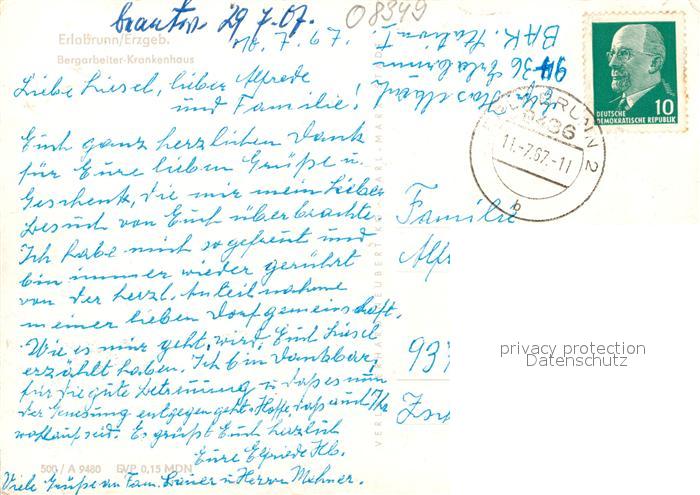 beantw. 29.7.67.
08349
Erlabrunn/Erzgeb.
Bergarbeiter-Krankenhaus
9436 Erlabrunn
BAK. Station I.
Liebe Liesel, lieber Alfrede
und Familie!
Euch ganz herzlichen Dank
für Eure lieben Grüße u.
Geschenk, die mir mein lieber
Besuch von Euch überbrachte.
Ich habe mich so gefreut und
bin immer wieder gerührt
von der herzl. Anteilnahme
meiner lieben Dorfgemeinschaft.
Wie es mir geht, wird Euch Liesel
erzählt haben. Ich bin dankbar,
für die gute Betreuung u. daß es nun
der Genesung entgegen geht. Hoffe, daß auch Ihr
wohlauf seid. Es grüßt Euch herzlich
Eure Elfriede Hb.
Viele Grüße an Fam. Bauer u. Herrn Mehner.
500 / A 9480 EVP 0,15 MDN
DEUTSCHE
DEMOKRATISCHE REPUBLIK
10
ERLABRUNN 2
9436
11.-7.67.-11
b
Familie
Alfr
93
privacy protection
Datenschutz